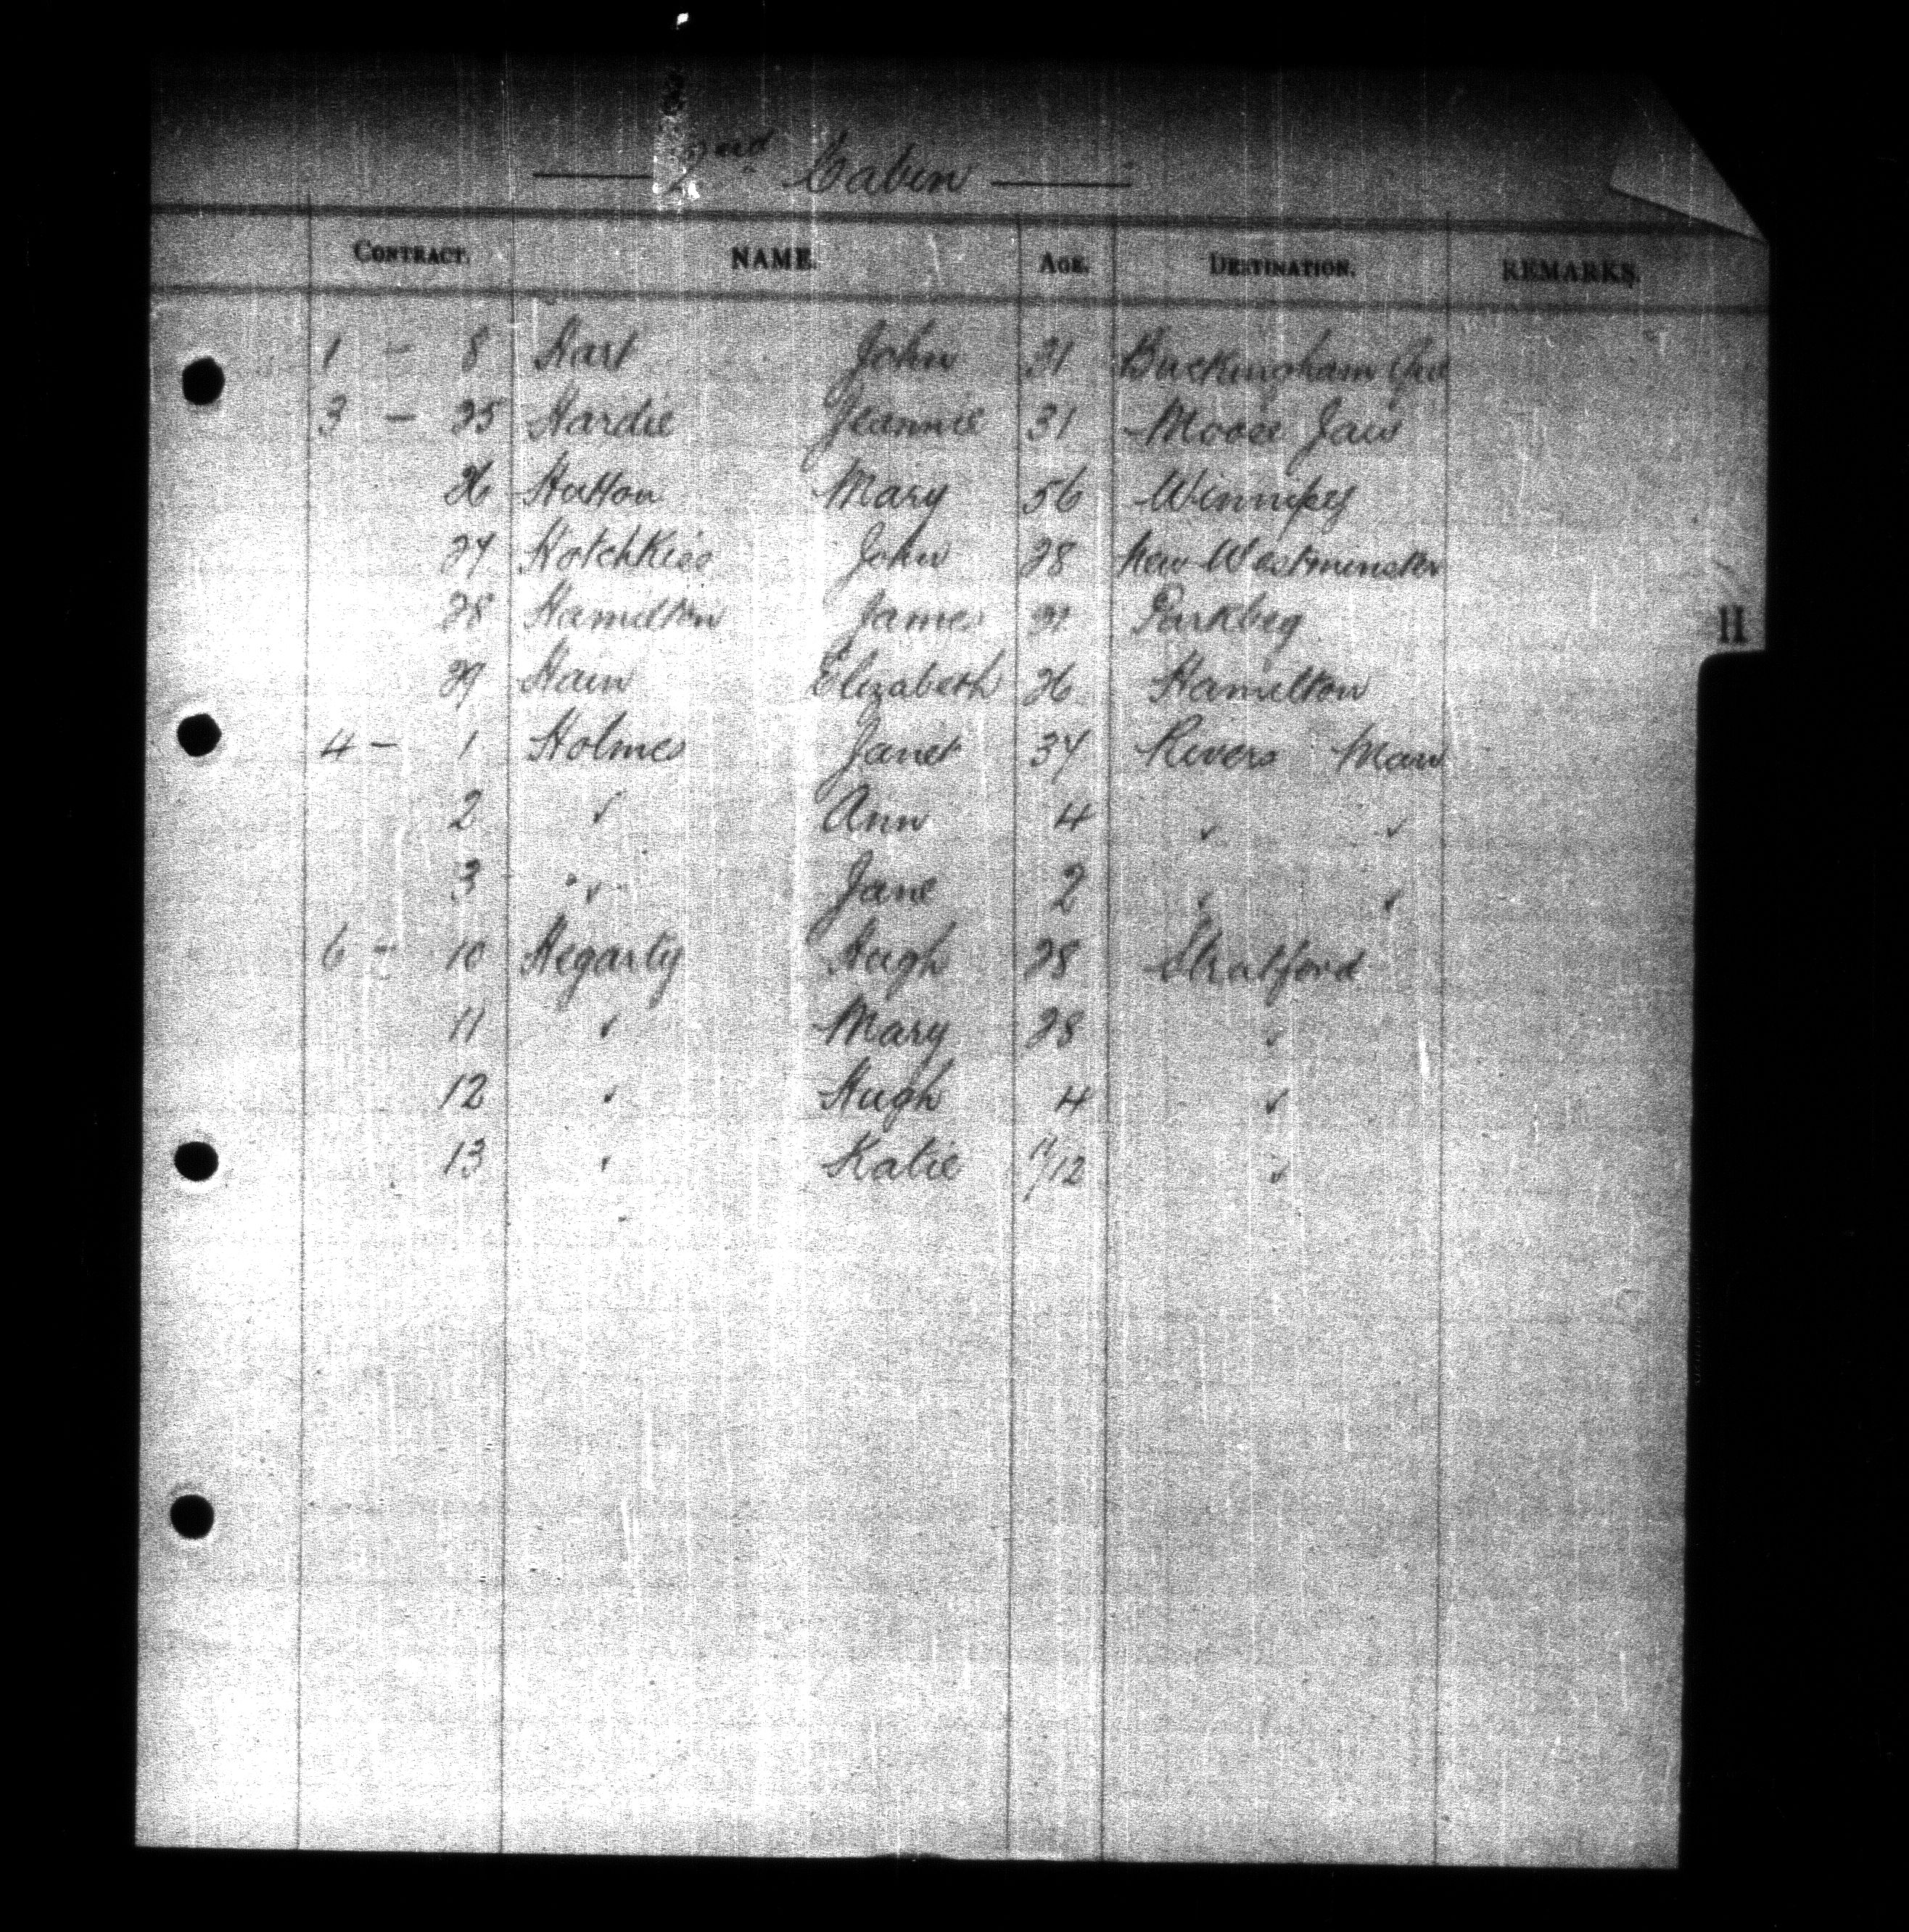 2nd Cabin
CONTRACT. NAME. AGE. DESTINATION. REMARKS.
1 - 8 Hart John 31 Buckingham Que
3 - 25 Hardie Jeannie 31 Moose Jaw
26 Hatton Mary 56 Winnipeg
27 Hotchkiss John 28 New Westminster
28 Hamilton James Parkbeg
29 Hain Elizabeth 26 Hamilton
H
4 - 1 Holmes Janet 37 Rivers Man
2 " Ann 4 " "
3 " Jane 2 " "
6 - 10 Hegarty Hugh 28 Stratford
11 " Mary 28 "
12 " Hugh 4 "
13 " Katie 11/12 "